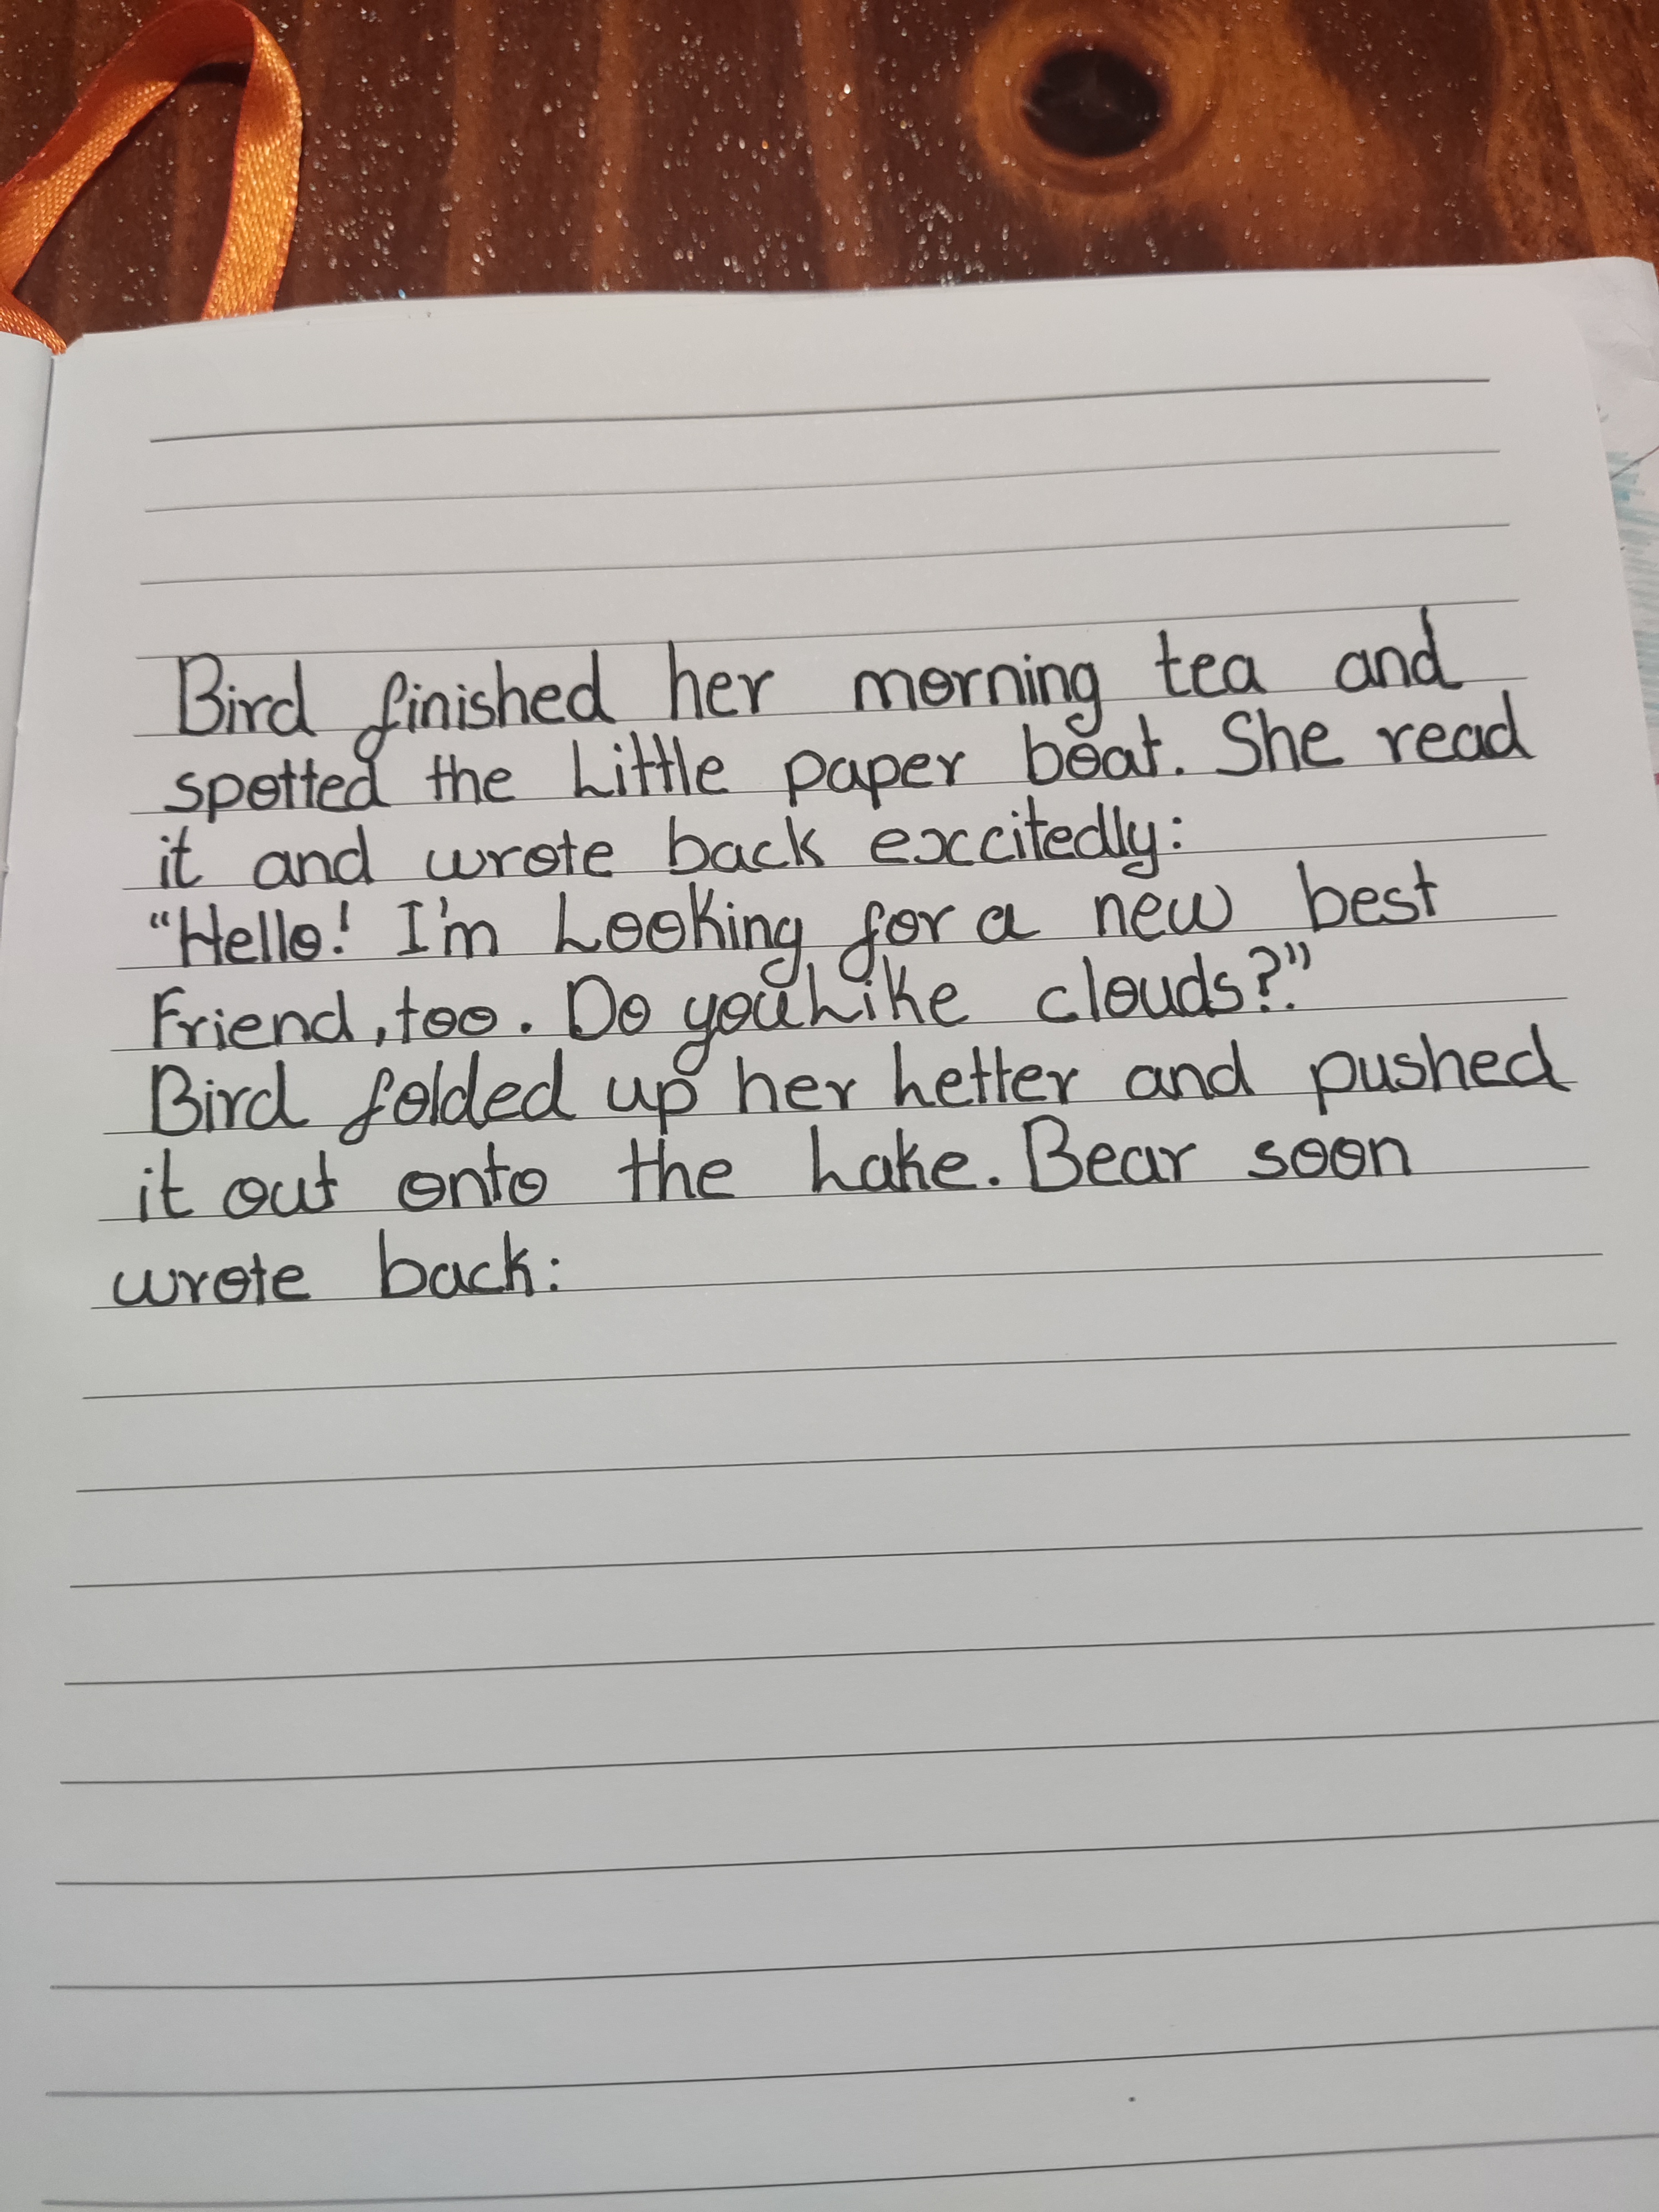 Bird finished her morning tea and
spotted the Little paper boat. She read
it and wrote back excitedly:
“Hello! I'm Looking for a new best
Friend, too. Do you Like clouds?”
Bird folded up her Letter and pushed
it out onto the Lake. Bear soon
wrote back: